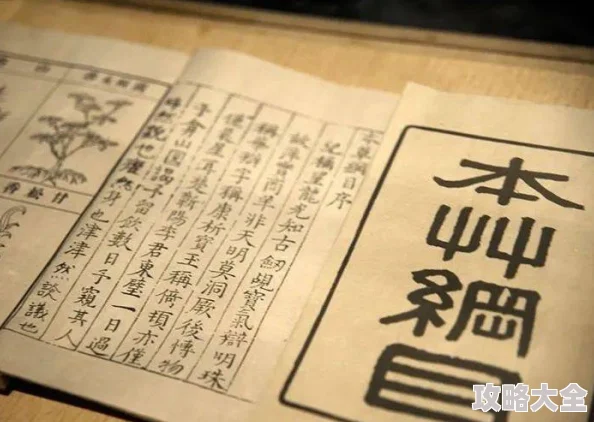 本艸綱目
本草綱目序
紀稱望龍光知古劒覘寶氣辯明珠
故萍實商羊非天明莫洞厥後博物
稱華辯字稱康析寶玉稱倚頓亦僅
僅晨星耳楚蘄陽李君東璧一日過
予弇山園謁予留飲數日予窺其人
睟然貌也癯然身也津津然談議也
甘松香
攻略大全